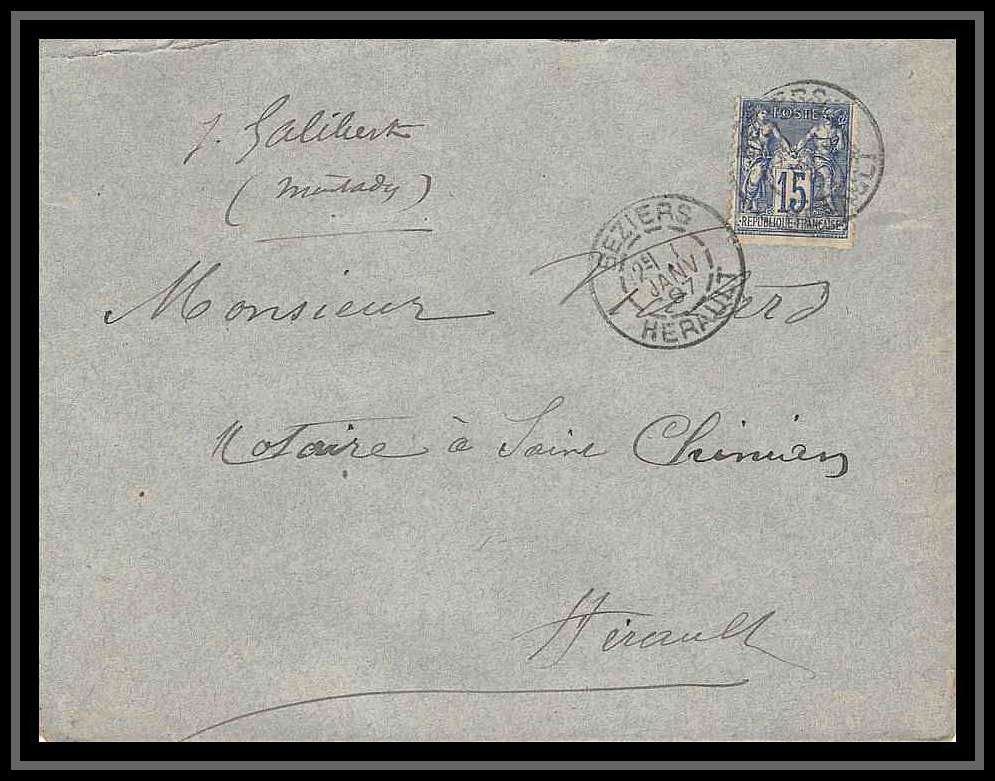 J. Galibert
(Montady)
POSTE
15
REPUBLIQUE FRANÇAISE
BEZIERS
JANV
97
HERAULT
Monsieur
Notaire à Saint Chinian
Hérault